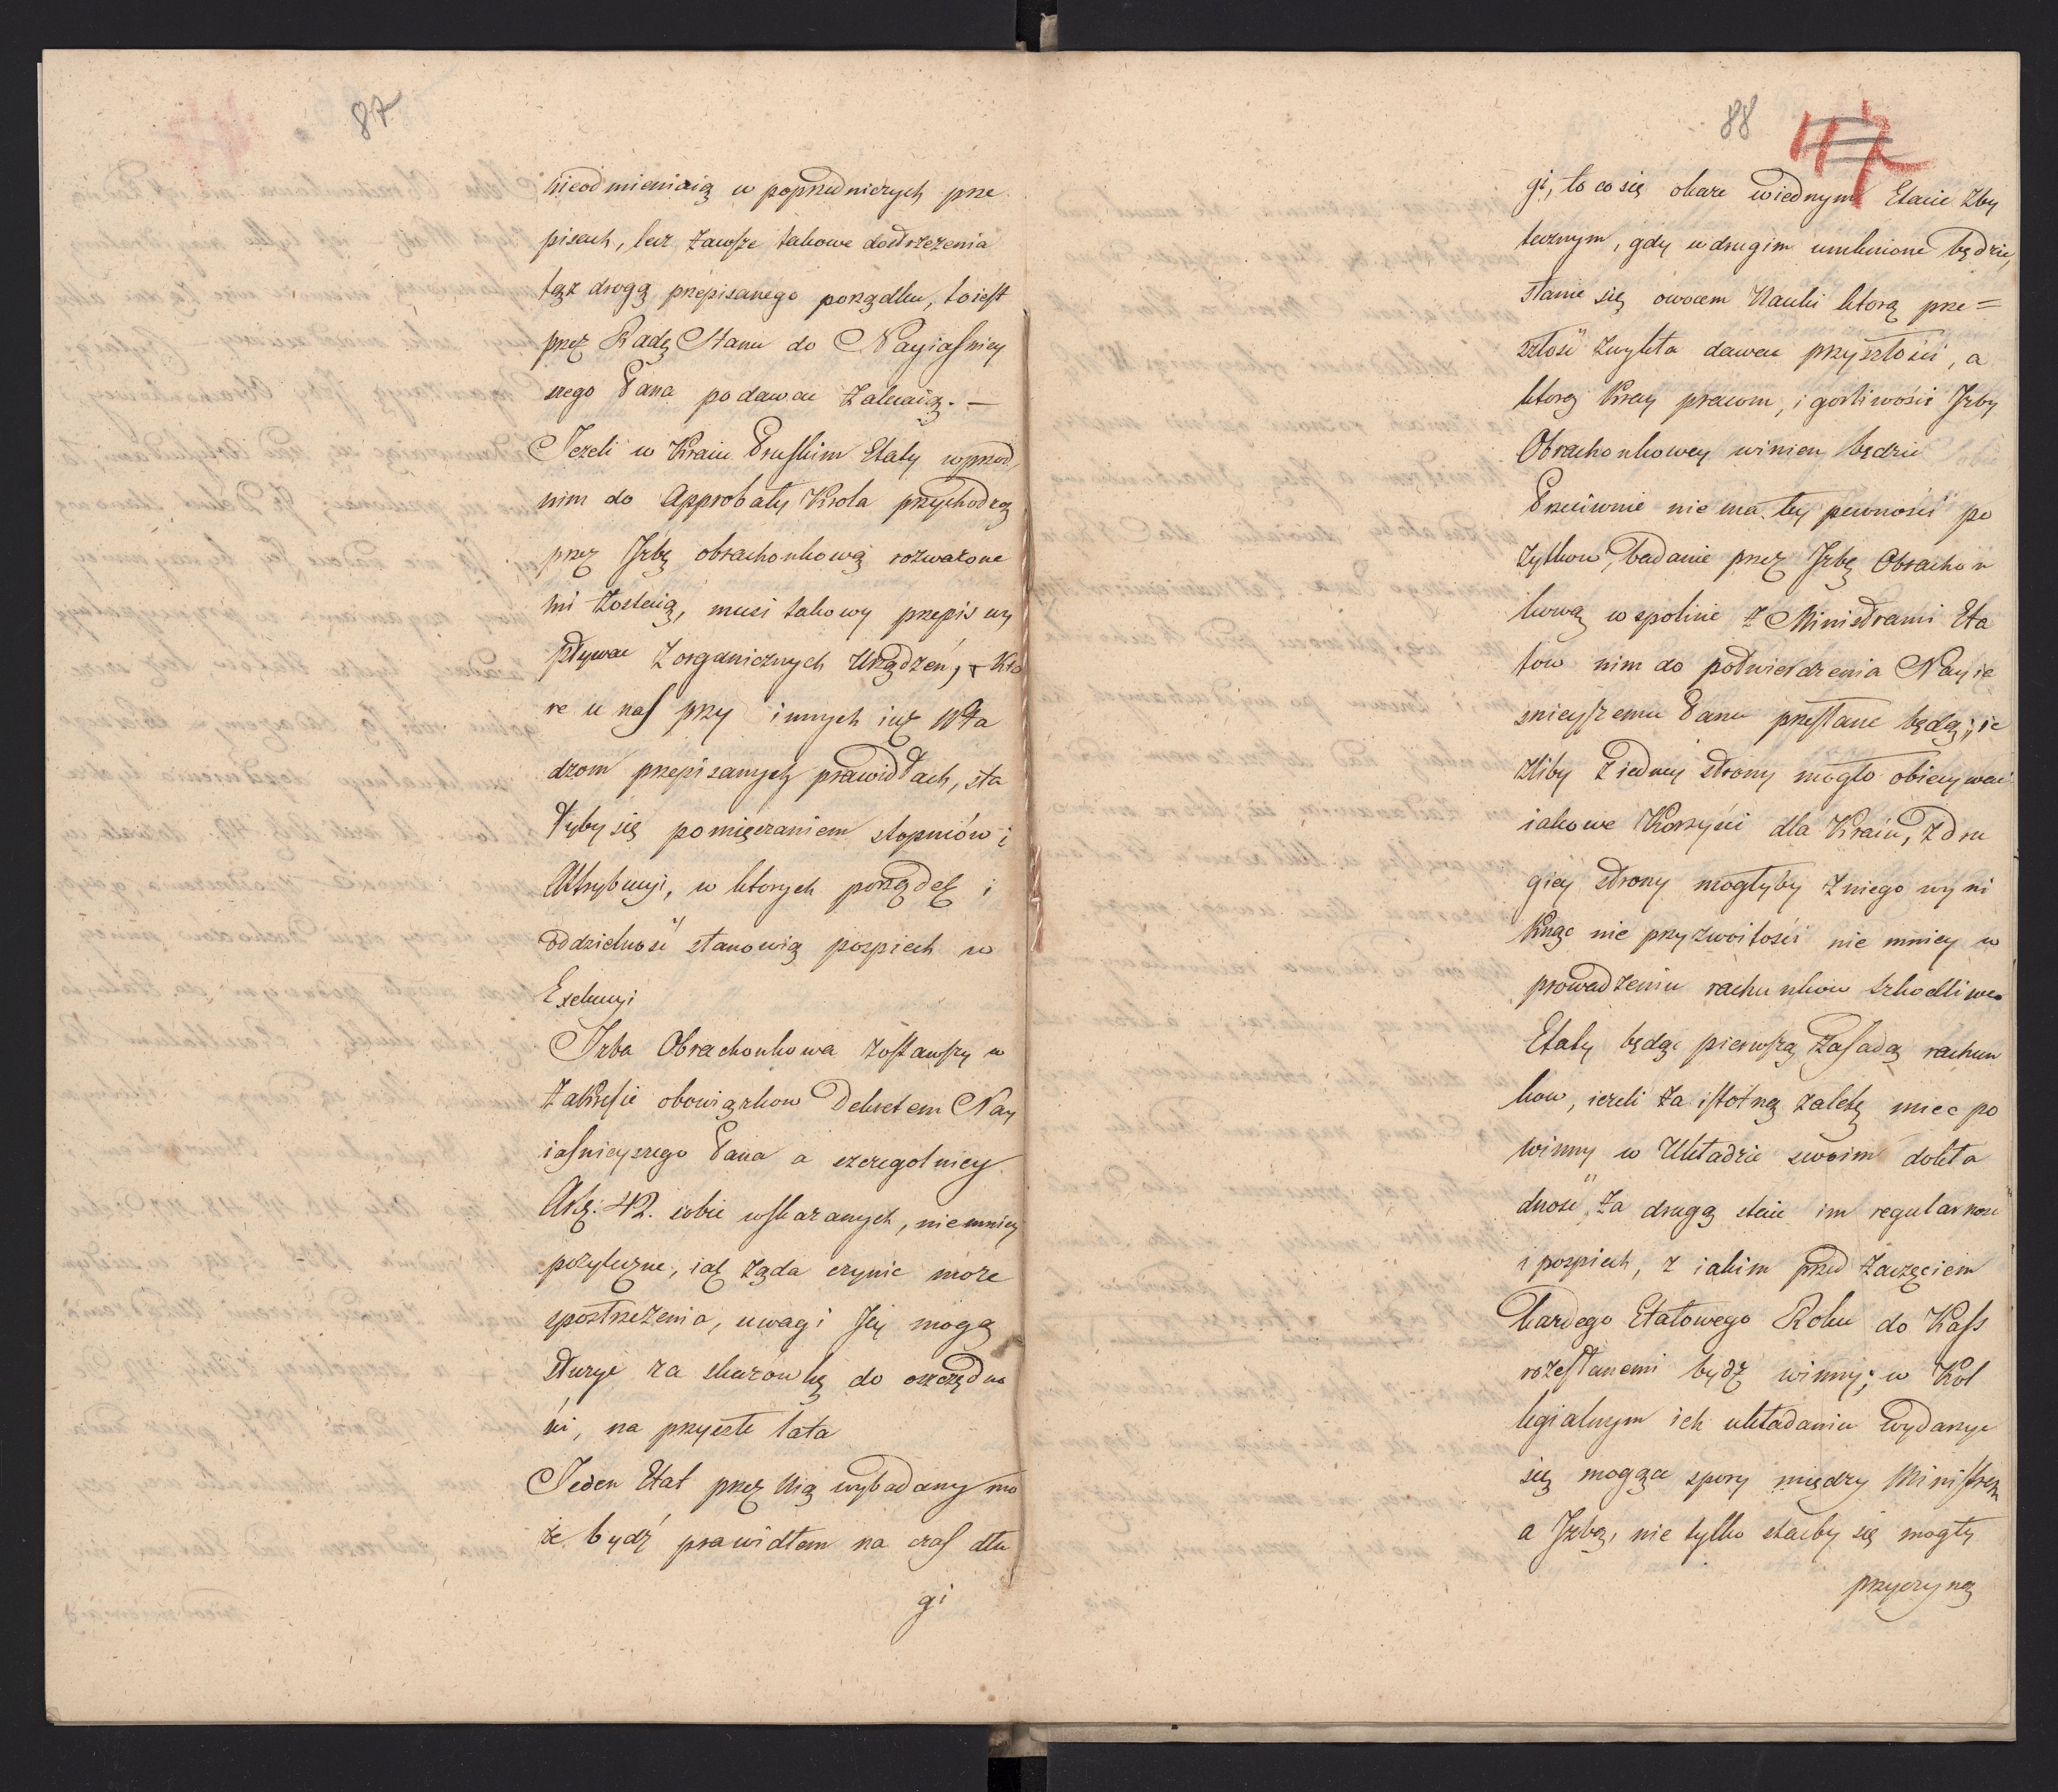 87
nieodmieniaią w poprzedniczych prze
pisach, lecz zawsze takowe dostrzeżenia
tąż drogą przepisanego porządku, toiest
przez Radę Stanu do Nayiaśniey
szego Pana podawać zalecaią. —
Jeżeli w Kraiu Pruskim Etaty wprzód,
nim do Approbaty Króla przychodzą
przez Jzbę obrachonkową rozważone
mi zostaią, musi takowy przepis wy
pływać z organicznych Urządzeń, Któ
re u nas przy innych iuż Wła
dzom przepisanych prawidłach, sta
łyby się pomięszaniem stopniów i
Attrybucyi, w których porządek i
oddzielność stanowią pospiech w
Exekucyi
Jzba Obrachonkowa zostawszy w
zakresie obowiązkow Dekretem Nay
iaśnieyszego Pana a szczegolniey
Art: 42. sobie wskazanych, niemniey
pożyteczne, iak żąda czynić może
spostrzeżenia, uwagi Jey mogą
służyć za skazówkę do oszczędno
ści, na przyszłe lata
Jeden Etat przez Nią wybadany mo
że bydź prawidłem na czas dłu
gi
88
117
gi, to co się okaże wiednym Etacie zby
tecznym, gdy w drugim umknione będzie,
stanie się owocem Nauki którą prze=
szłość zwykła dawać przyszłości, a
którą Kray pracom, i gorliwości Jzby
Obrachonkowey winien będzie
Przeciwnie nie ma tey pewności po
żytkow, badanie przez Jzbę Obrachon
kową wspolnie z Ministrami Eta
tow nim do potwierdzenia Nayia
śnieyszemu Panu przesłane będą; ie
żliby z iedney strony mogło obiecywać
iakowe Korzyści dla Kraiu, z dru
giey strony mogłyby z niego wyni
knąć nie przyzwoitości nie mniey w
prowadzeniu rachunkow szkodliwe
Etaty będąc pierwszą zasadą rachun
kow, ieżeli za istotną zaletę mieć po
winny w Układzie swoim dokła
dność, za drugą staie im regularność
i pospiech, z iakim przed zaczęciem
każdego Etatowego Roku do Kass
rozesłanemi bydź winny; w Kol
legialnym ich układaniu wydarzyć
się mogące spory między Ministrem
a Jzbą, nie tylko staćby się mogły
przyczyną